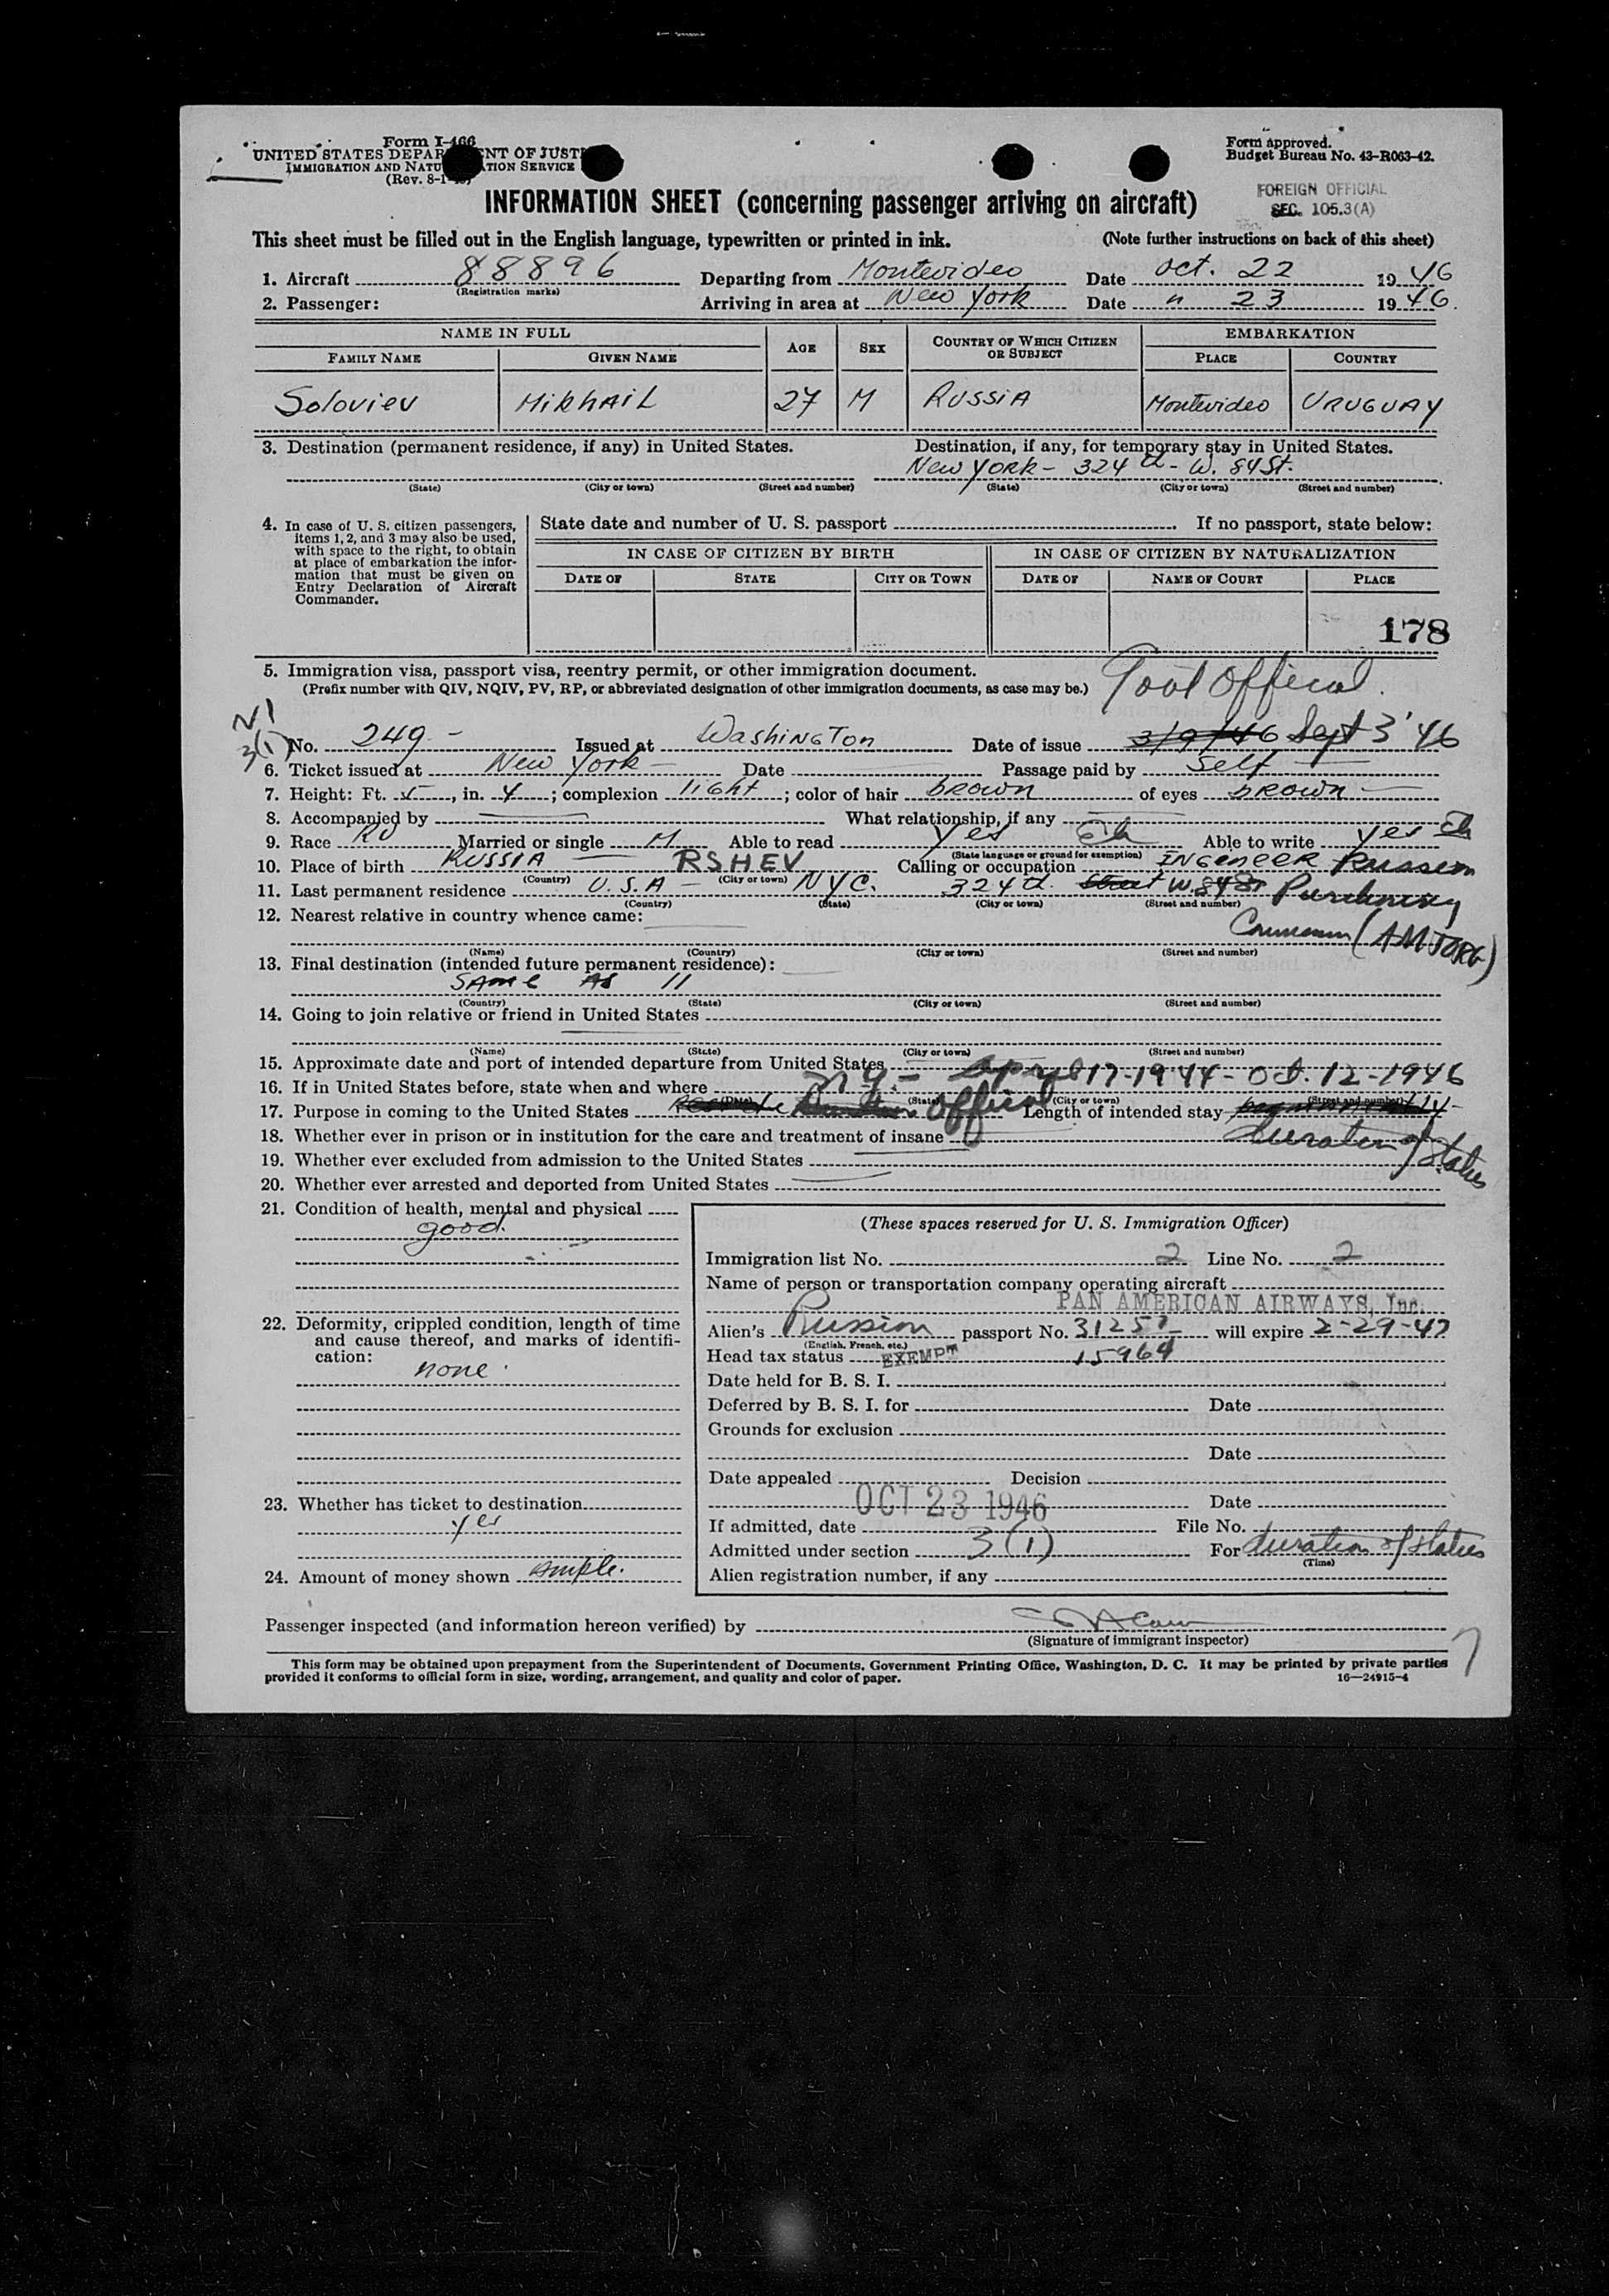 Form I-466
UNITED STATES DEPAR NT OF JUST
IMMIGRATION AND NATU TION SERVICE
(Rev. 8-1-
Form approved.
Budget Bureau No. 43-R063-42.
FOREIGN OFFICIAL
SEC. 105.3(A)
INFORMATION SHEET (concerning passenger arriving on aircraft)
This sheet must be filled out in the English language, typewritten or printed in ink. (Note further instructions on back of this sheet)
1. Aircraft 88896 Departing from Montevideo Date Oct. 22 1946
(Registration marks)
2. Passenger: Arriving in area at New York Date " 23 1946.
NAME IN FULL AGE SEX COUNTRY OF WHICH CITIZEN OR SUBJECT EMBARKATION
FAMILY NAME GIVEN NAME PLACE COUNTRY
Soloviev MikhAiL 27 M RUSSIA Montevideo URUGUAY
3. Destination (permanent residence, if any) in United States. Destination, if any, for temporary stay in United States.
New York - 324 - W. 84 St.
(State) (City or town) (Street and number) (State) (City or town) (Street and number)
4. In case of U. S. citizen passengers, items 1, 2, and 3 may also be used, with space to the right, to obtain at place of embarkation the information that must be given on Entry Declaration of Aircraft Commander.
State date and number of U. S. passport . If no passport, state below:
IN CASE OF CITIZEN BY BIRTH IN CASE OF CITIZEN BY NATURALIZATION
DATE OF STATE CITY OR TOWN DATE OF NAME OF COURT PLACE
178
5. Immigration visa, passport visa, reentry permit, or other immigration document.
(Prefix number with QIV, NQIV, PV, RP, or abbreviated designation of other immigration documents, as case may be.) Official.
3(1) No. 249 - Issued at Washington Date of issue 3/9/46 Sept 3 '46
6. Ticket issued at New York - Date Passage paid by Self
7. Height: Ft. 5, in. 4; complexion light; color of hair brown of eyes brown
8. Accompanied by What relationship, if any
9. Race RU Married or single M Able to read yes Able to write yes
(State language or ground for exemption)
10. Place of birth RUSSIA - RSHEV Calling or occupation INGeneeR Russian
(Country) (City or town)
11. Last permanent residence U.S.A - NYC. 324 Street W. 84 St Purchasing
(Country) (State) (City or town) (Street and number)
12. Nearest relative in country whence came:
(AMTORG)
(Name) (Country) (City or town) (Street and number)
13. Final destination (intended future permanent residence):
SAme As 11
(Country) (State) (City or town) (Street and number)
14. Going to join relative or friend in United States
(Name) (State) (City or town) (Street and number)
15. Approximate date and port of intended departure from United States
16. If in United States before, state when and where N.Y. - April 17-1944 - Oct. 12-1946
(Date) (State) (City or town) (Street and number)
17. Purpose in coming to the United States Official Length of intended stay
duration of status
18. Whether ever in prison or in institution for the care and treatment of insane
19. Whether ever excluded from admission to the United States
20. Whether ever arrested and deported from United States
21. Condition of health, mental and physical
good.
22. Deformity, crippled condition, length of time and cause thereof, and marks of identification:
none.
23. Whether has ticket to destination
yes
24. Amount of money shown ample.
(These spaces reserved for U. S. Immigration Officer)
Immigration list No. 2 Line No. 2
Name of person or transportation company operating aircraft
PAN AMERICAN AIRWAYS, Inc.
Alien's Russian passport No. 31257 will expire 2-29-47
(English, French, etc.)
Head tax status EXEMPT 15964
Date held for B. S. I.
Deferred by B. S. I. for Date
Grounds for exclusion
Date
Date appealed Decision
OCT 23 1946 Date
If admitted, date File No.
Admitted under section 3(1) For duration of status
(Time)
Alien registration number, if any
Passenger inspected (and information hereon verified) by
(Signature of immigrant inspector)
This form may be obtained upon prepayment from the Superintendent of Documents, Government Printing Office, Washington, D. C. It may be printed by private parties
provided it conforms to official form in size, wording, arrangement, and quality and color of paper. 16—24915-4